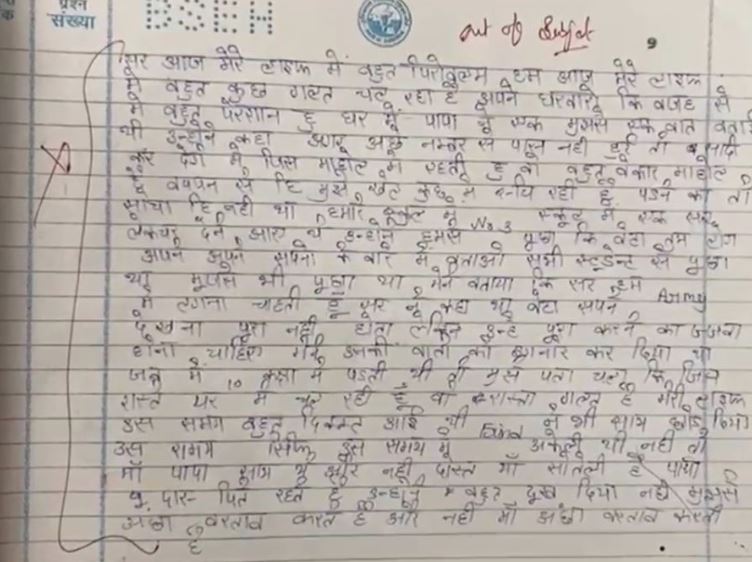 प्रश्न
संख्या
BSEH
out of Subject
9
सर आज मेरे लाइफ में बहुत पिरोब्लम हम आज मेरे लाइफ
में बहुत कुछ गलत चल रहा है अपने घरवालो कि वजह से
में बहुत परशान हु घर में पापा ने एक मुझसे एक बात बताई
थी उन्होने कहा अगर अछे नम्बर से पास नही हुई तो शादी
कर देगे में जिस माहोल में रहती हु वो बहुत बेकार माहोल
है बचपन से हि मुझे खेल कुछ में रूचि रही है पडने का तो
सोचा हि नही था हमारे स्कुल में No. 3 स्कूल में एक सर
लेकचर देने आए थे उन्होने हमसे पूछा कि बेटा तुम लोग
अपने अपने सपनो के बारे में बताओ सभी स्टूडेन्ट से पूछा
था मुझसे भी पूछा था मेने बताया कि सर हमे Army
में लगना चाहती हू सर ने कहा था बेटा सपने
देखना पूरा नही होता लेकिन उन्हे पूरा करने का जजबा
होना चाहिए मेने उनकी बातो को इगनोर कर दिया था
जब में 10 कक्षा में पडती थी तो मुझे पता चला कि जिस
रास्ते पर में चल रही हूँ वो रास्ता गलत है मेरी लाइफ
उस समय बहुत दिक्कत आई थी ने भी साथ छोड दिया
उस समय सिर्फ उस समय में अकेली थी नही तो
माँ पापा साथ थे और नही दोस्त माँ सोतेली है पापा
दारू पित रहते है उन्होने बहुत दुख दिया नही मुझसे
अछा बरताव करते है और नही माँ अछा बरताव करती
है